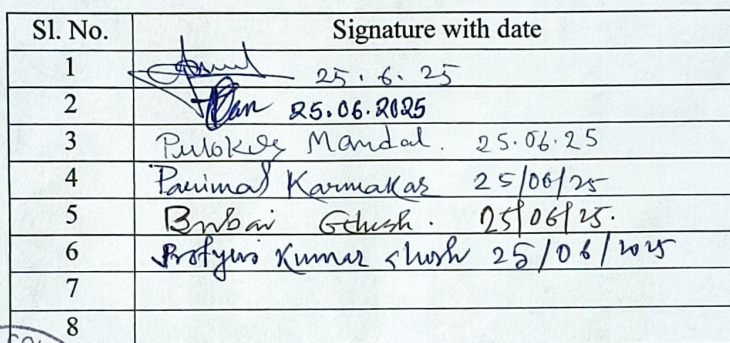 Sl. No. Signature with date
1 25.6.25
2 25.06.2025
3 Mandal. 25.06.25
4 Parimal Karmakar 25/06/25
5 Ghosh. 25/06/25.
6 Kumar Ghosh 25/06/2025
7
8